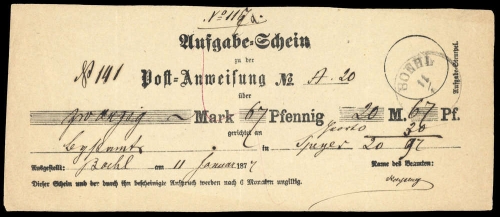 No 117 a.
Aufgabe-Schein
zu der
No 141 Post-Anweisung No A. 20
über
zwanzig Mark 67 Pfennig 20 M. 67 Pf.
gerichtet an Porto 30
in Speyer 20 97
Ausgestellt: Boehl am 11 Januar 1877 Name des Beamten:
Dieser Schein und der durch ihn bescheinigte Anspruch werden nach 6 Monaten ungiltig.
BOEHL
11
Aufgabe-Stempel.